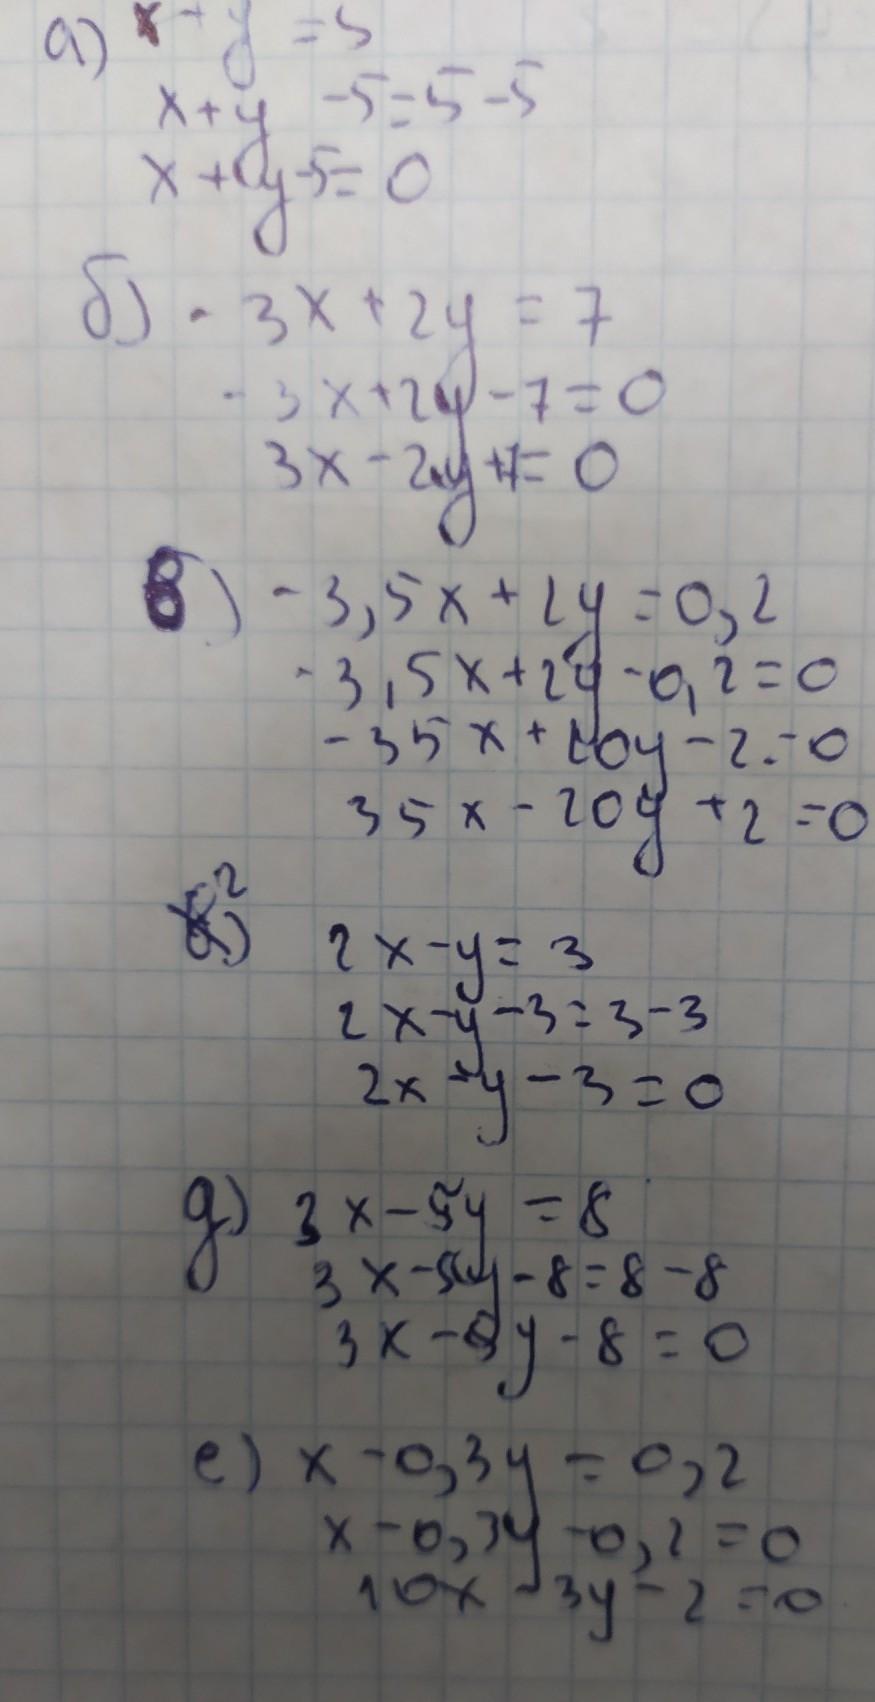 а) x + y = 5
x + y - 5 = 5 - 5
x + y - 5 = 0
б) - 3x + 2y = 7
- 3x + 2y - 7 = 0
3x - 2y + 7 = 0
в) - 3,5x + 2y = 0,2
- 3,5x + 2y - 0,2 = 0
- 35x + 20y - 2 = 0
35x - 20y + 2 = 0
г) 2x - y = 3
2x - y - 3 = 3 - 3
2x - y - 3 = 0
д) 3x - 5y = 8
3x - 5y - 8 = 8 - 8
3x - 5y - 8 = 0
е) x - 0,3y = 0,2
x - 0,3y - 0,2 = 0
10x - 3y - 2 = 0